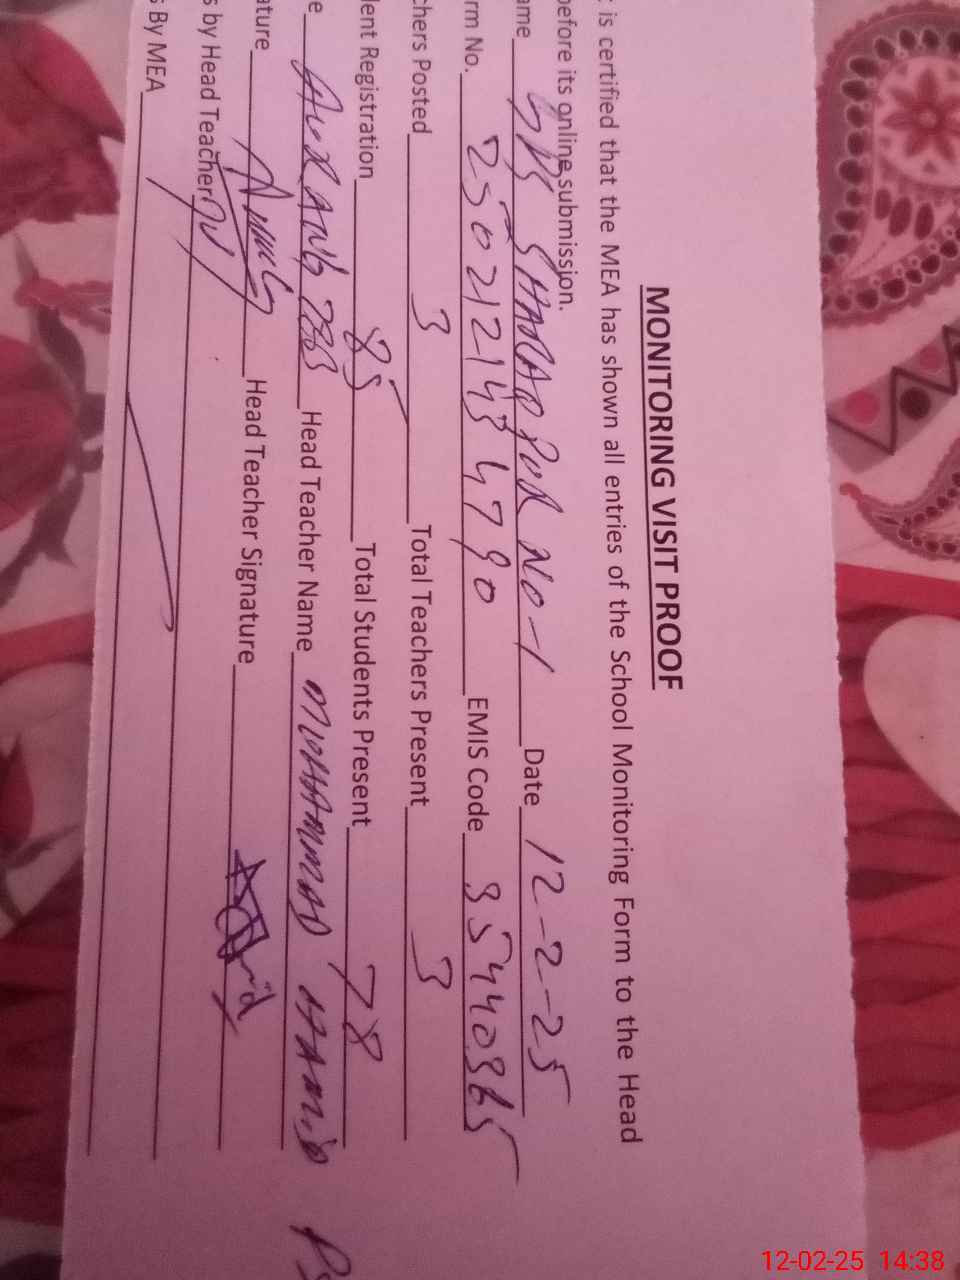 MONITORING VISIT PROOF
is certified that the MEA has shown all entries of the School Monitoring Form to the Head
before its online submission.
ame GPS SHADAD PUR NO-1 Date 12-2-25
rm No. 25021214 4790 EMIS Code 35440365
chers Posted 3 Total Teachers Present 3
dent Registration 85 Total Students Present 78
e AURANG ZEB Head Teacher Name MUHAMMAD HAMID
ature Head Teacher Signature
s by Head Teacher
s By MEA
12-02-25 14:38